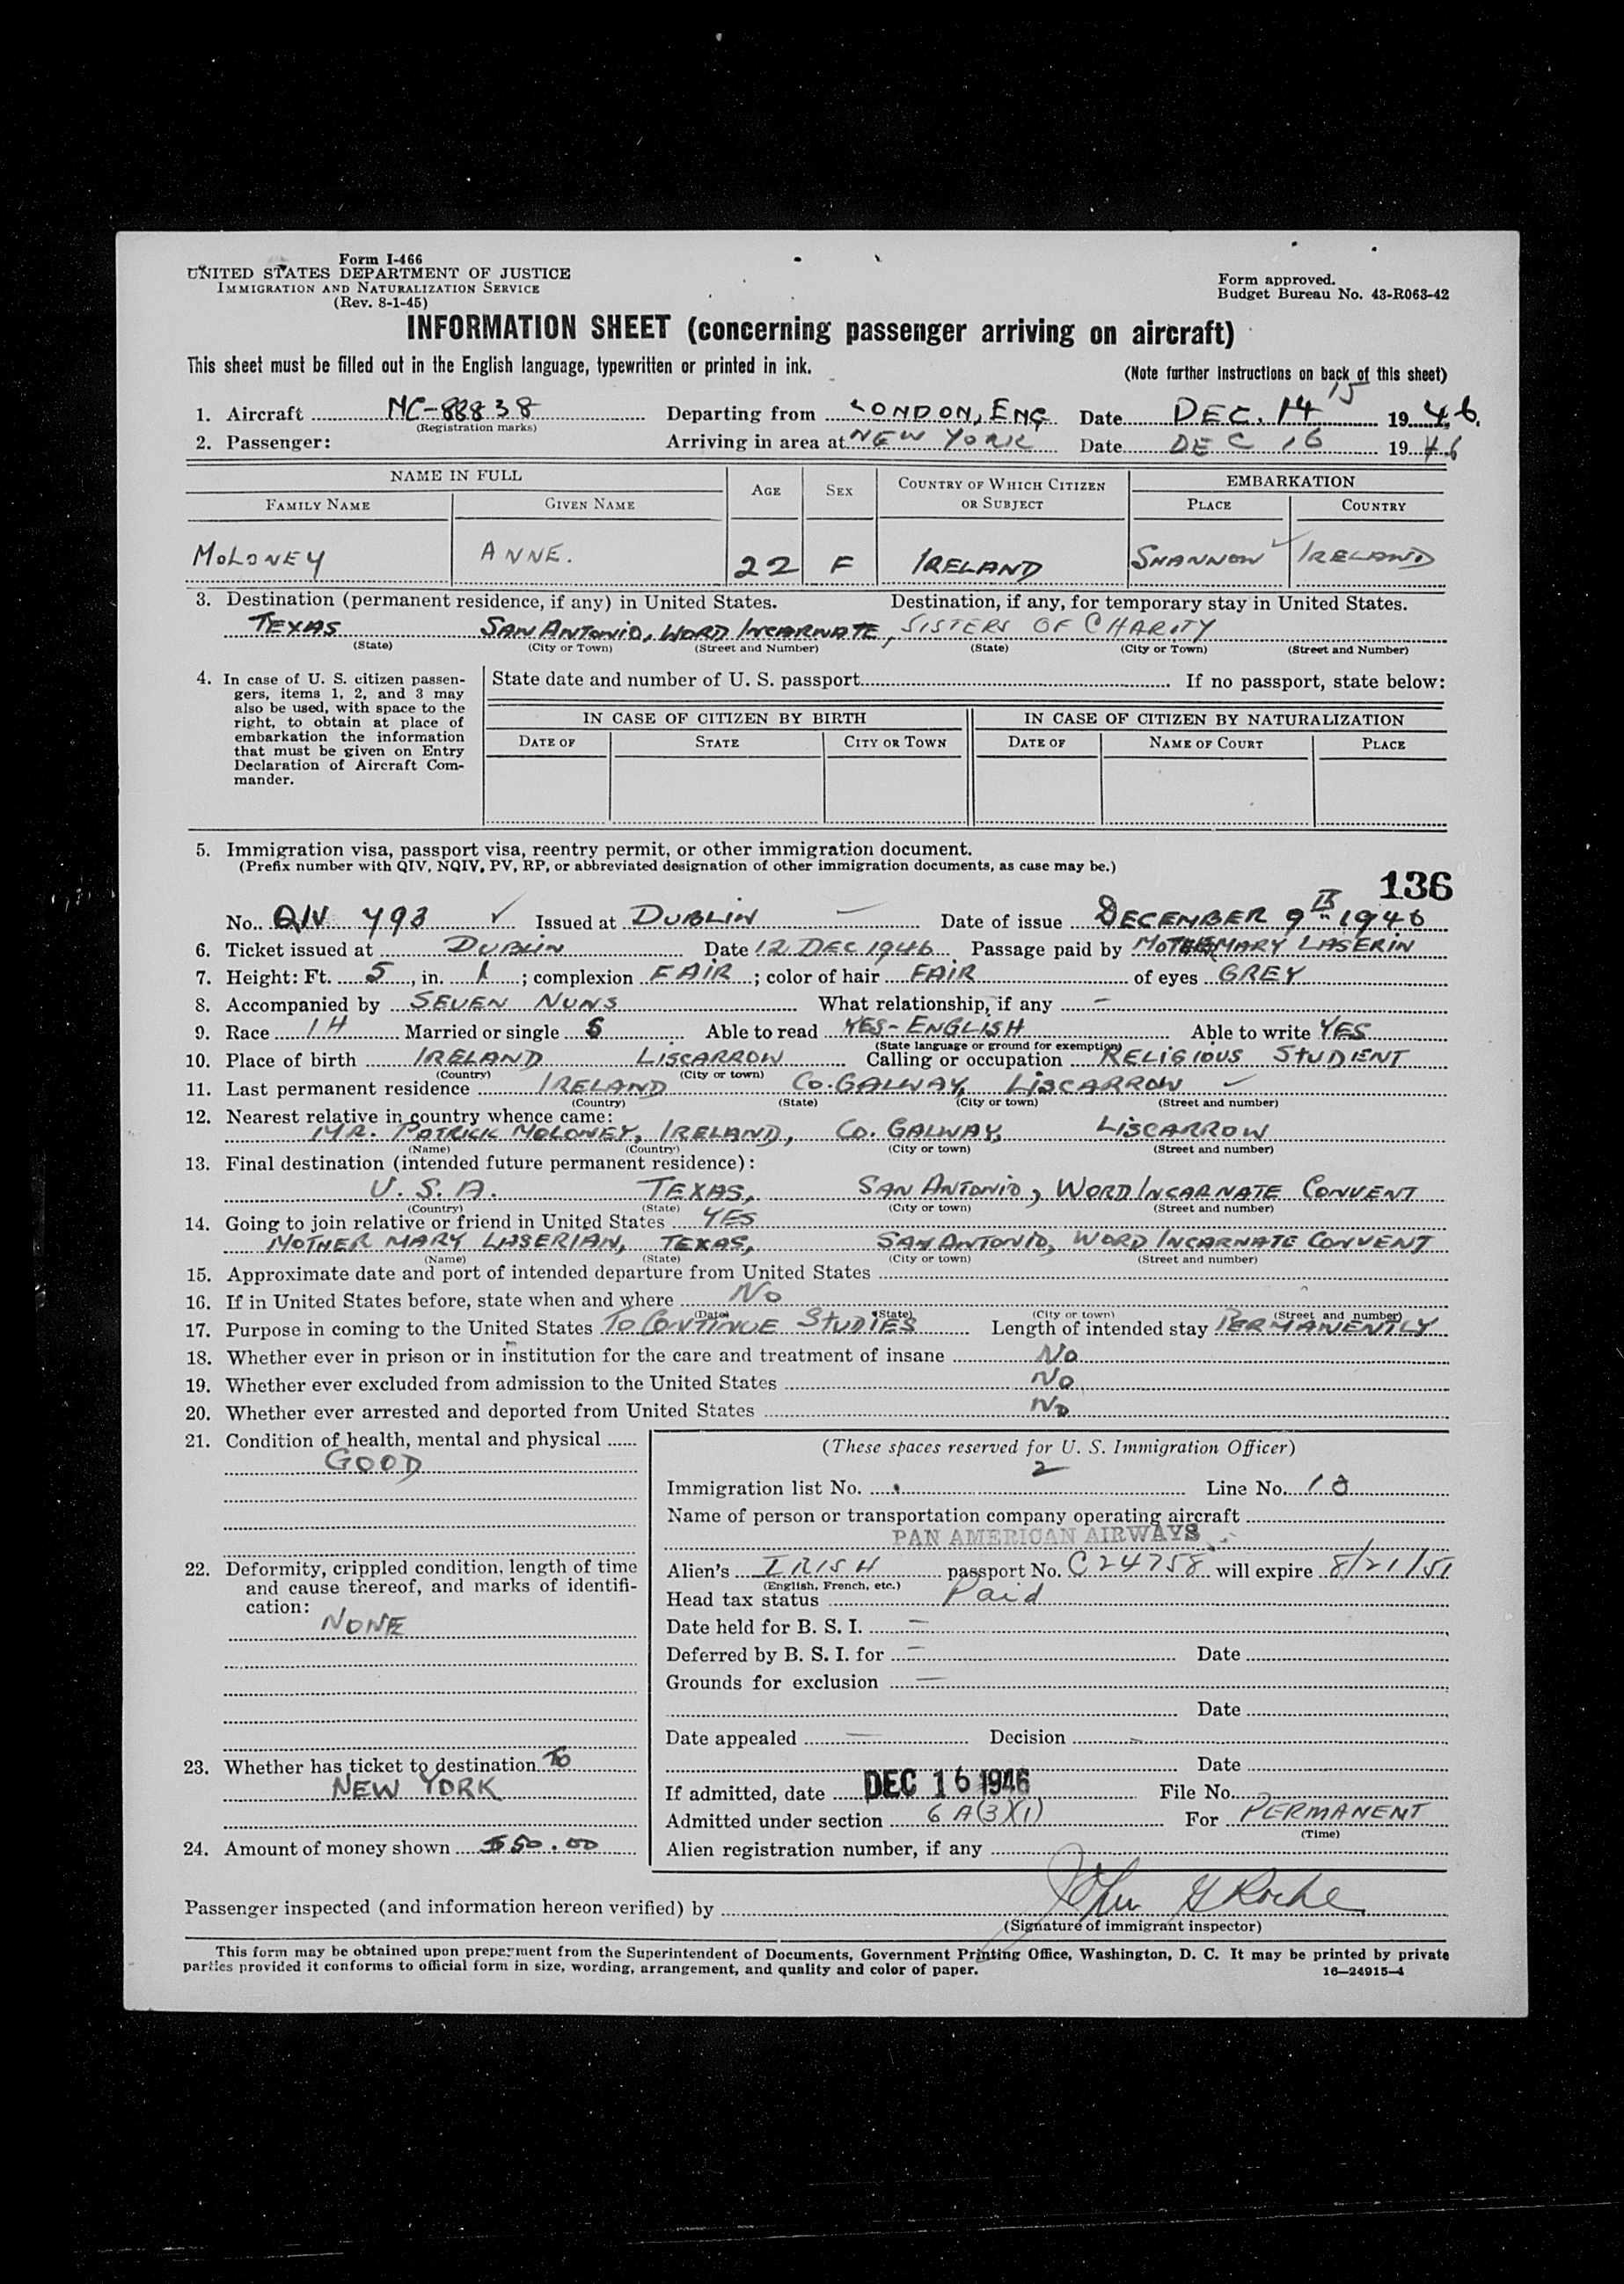 Form I-466
UNITED STATES DEPARTMENT OF JUSTICE
IMMIGRATION AND NATURALIZATION SERVICE
(Rev. 8-1-45)
Form approved.
Budget Bureau No. 43-R063-42
INFORMATION SHEET (concerning passenger arriving on aircraft)
This sheet must be filled out in the English language, typewritten or printed in ink.
(Note further instructions on back of this sheet)
1. Aircraft NC-88838 Departing from LONDON, ENG Date DEC. 14 15 1946.
(Registration marks)
2. Passenger: Arriving in area at NEW YORK Date DEC 16 1946
NAME IN FULL AGE SEX COUNTRY OF WHICH CITIZEN OR SUBJECT EMBARKATION
FAMILY NAME GIVEN NAME PLACE COUNTRY
MOLONEY ANNE. 22 F IRELAND SHANNON IRELAND
3. Destination (permanent residence, if any) in United States. Destination, if any, for temporary stay in United States.
TEXAS SAN ANTONIO, WORD INCARNATE, SISTERS OF CHARITY
(State) (City or Town) (Street and Number) (State) (City or Town) (Street and Number)
4. In case of U. S. citizen passen-
gers, items 1, 2, and 3 may
also be used, with space to the
right, to obtain at place of
embarkation the information
that must be given on Entry
Declaration of Aircraft Com-
mander.
State date and number of U. S. passport If no passport, state below:
IN CASE OF CITIZEN BY BIRTH IN CASE OF CITIZEN BY NATURALIZATION
DATE OF STATE CITY OR TOWN DATE OF NAME OF COURT PLACE
5. Immigration visa, passport visa, reentry permit, or other immigration document.
(Prefix number with QIV, NQIV, PV, RP, or abbreviated designation of other immigration documents, as case may be.)
136
No. QIV 793 Issued at DUBLIN Date of issue DECEMBER 9TH 1946
6. Ticket issued at DUBLIN Date 12 DEC 1946 Passage paid by MOTHER MARY LASERIN
7. Height: Ft. 5, in. 1; complexion FAIR; color of hair FAIR of eyes GREY
8. Accompanied by SEVEN NUNS What relationship, if any -
9. Race IH Married or single S Able to read YES-ENGLISH Able to write YES
(State language or ground for exemption)
10. Place of birth IRELAND LISCARROW Calling or occupation RELIGIOUS STUDENT
(Country) (City or town)
11. Last permanent residence IRELAND CO. GALWAY, LISCARROW
(Country) (State) (City or town) (Street and number)
12. Nearest relative in country whence came:
MR. PATRICK MOLONEY, IRELAND, CO. GALWAY, LISCARROW
(Name) (Country) (City or town) (Street and number)
13. Final destination (intended future permanent residence):
U. S. A. TEXAS, SAN ANTONIO, WORD INCARNATE CONVENT
(Country) (State) (City or town) (Street and number)
14. Going to join relative or friend in United States YES
MOTHER MARY LASERIAN, TEXAS, SAN ANTONIO, WORD INCARNATE CONVENT
(Name) (State) (City or town) (Street and number)
15. Approximate date and port of intended departure from United States
16. If in United States before, state when and where NO
(Date) (State) (City or town) (Street and number)
17. Purpose in coming to the United States TO CONTINUE STUDIES Length of intended stay PERMANENTLY
18. Whether ever in prison or in institution for the care and treatment of insane NO
19. Whether ever excluded from admission to the United States NO
20. Whether ever arrested and deported from United States NO
21. Condition of health, mental and physical
GOOD
22. Deformity, crippled condition, length of time
and cause thereof, and marks of identifi-
cation:
NONE
23. Whether has ticket to destination TO
NEW YORK
24. Amount of money shown $50.00
(These spaces reserved for U. S. Immigration Officer)
Immigration list No. 2 Line No. 10
Name of person or transportation company operating aircraft
PAN AMERICAN AIRWAYS
Alien's IRISH passport No. C24758 will expire 8/21/51
(English, French, etc.)
Head tax status Paid
Date held for B. S. I. -
Deferred by B. S. I. for - Date
Grounds for exclusion -
Date
Date appealed - Decision
Date
If admitted, date DEC 16 1946 File No.
Admitted under section 6 A(3)(1) For PERMANENT
(Time)
Alien registration number, if any
Passenger inspected (and information hereon verified) by John G Roche
(Signature of immigrant inspector)
This form may be obtained upon prepayment from the Superintendent of Documents, Government Printing Office, Washington, D. C. It may be printed by private
parties provided it conforms to official form in size, wording, arrangement, and quality and color of paper. 16—24915-4